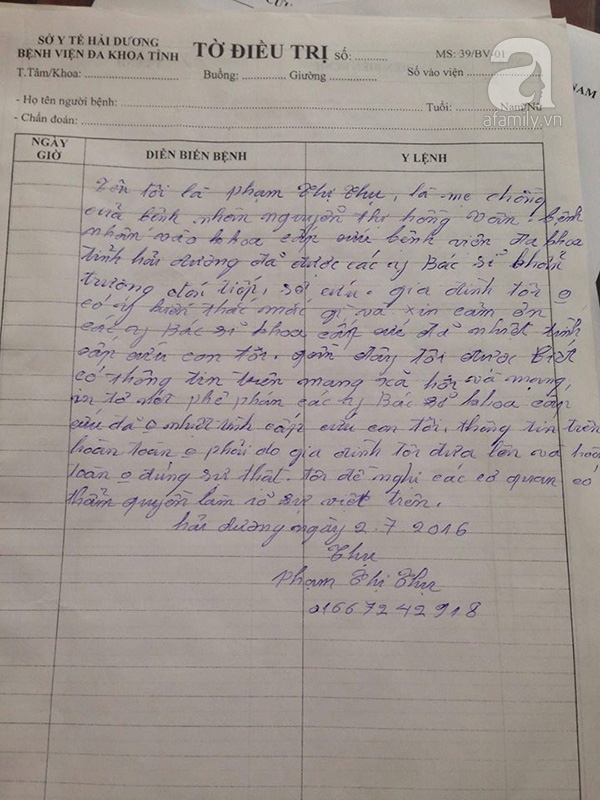 SỞ Y TẾ HẢI DƯƠNG
BỆNH VIỆN ĐA KHOA TỈNH
TỜ ĐIỀU TRỊ SỐ: ..........
MS: 39/BV-01
T.Tâm/Khoa: .................... Buồng: ............ Giường ............ Số vào viện ............
NAM
- Họ tên người bệnh: .................... Tuổi: ............ Nam/Nữ
- Chẩn đoán: ....................
afamily.vn
NGÀY GIỜ
DIỄN BIẾN BỆNH
Y LỆNH
Tên tôi là phạm Thị Thu, là mẹ chồng
của bệnh nhân nguyễn thị hồng vân. bệnh
nhân vào khoa cấp cứu bệnh viên đa khoa
tỉnh hải dương đã được các y Bác sĩ khẩn
trương đón tiếp, sơ cứu. gia đình tôi o
có ý kiến thắc mắc gì và xin cảm ơn
các y Bác sĩ khoa cấp cứu đã nhiệt tình
cấp cứu con tôi. gần đây tôi được biết
có thông tin trên mang xã hội và mạng,
in tờ nót phê phán các y Bác sĩ khoa cấp
cứu đã o nhiệt tình cấp cứu con tôi. thông tin trên
hoàn toàn o phải do gia đình tôi đưa lên và hoàn
toàn o đúng sự thật. tôi đề nghị các cơ quan có
thẩm quyền làm rõ sự viêt trên.
hải dương ngày 2.7.2016
Thu
phạm Thị Thu
01667242918